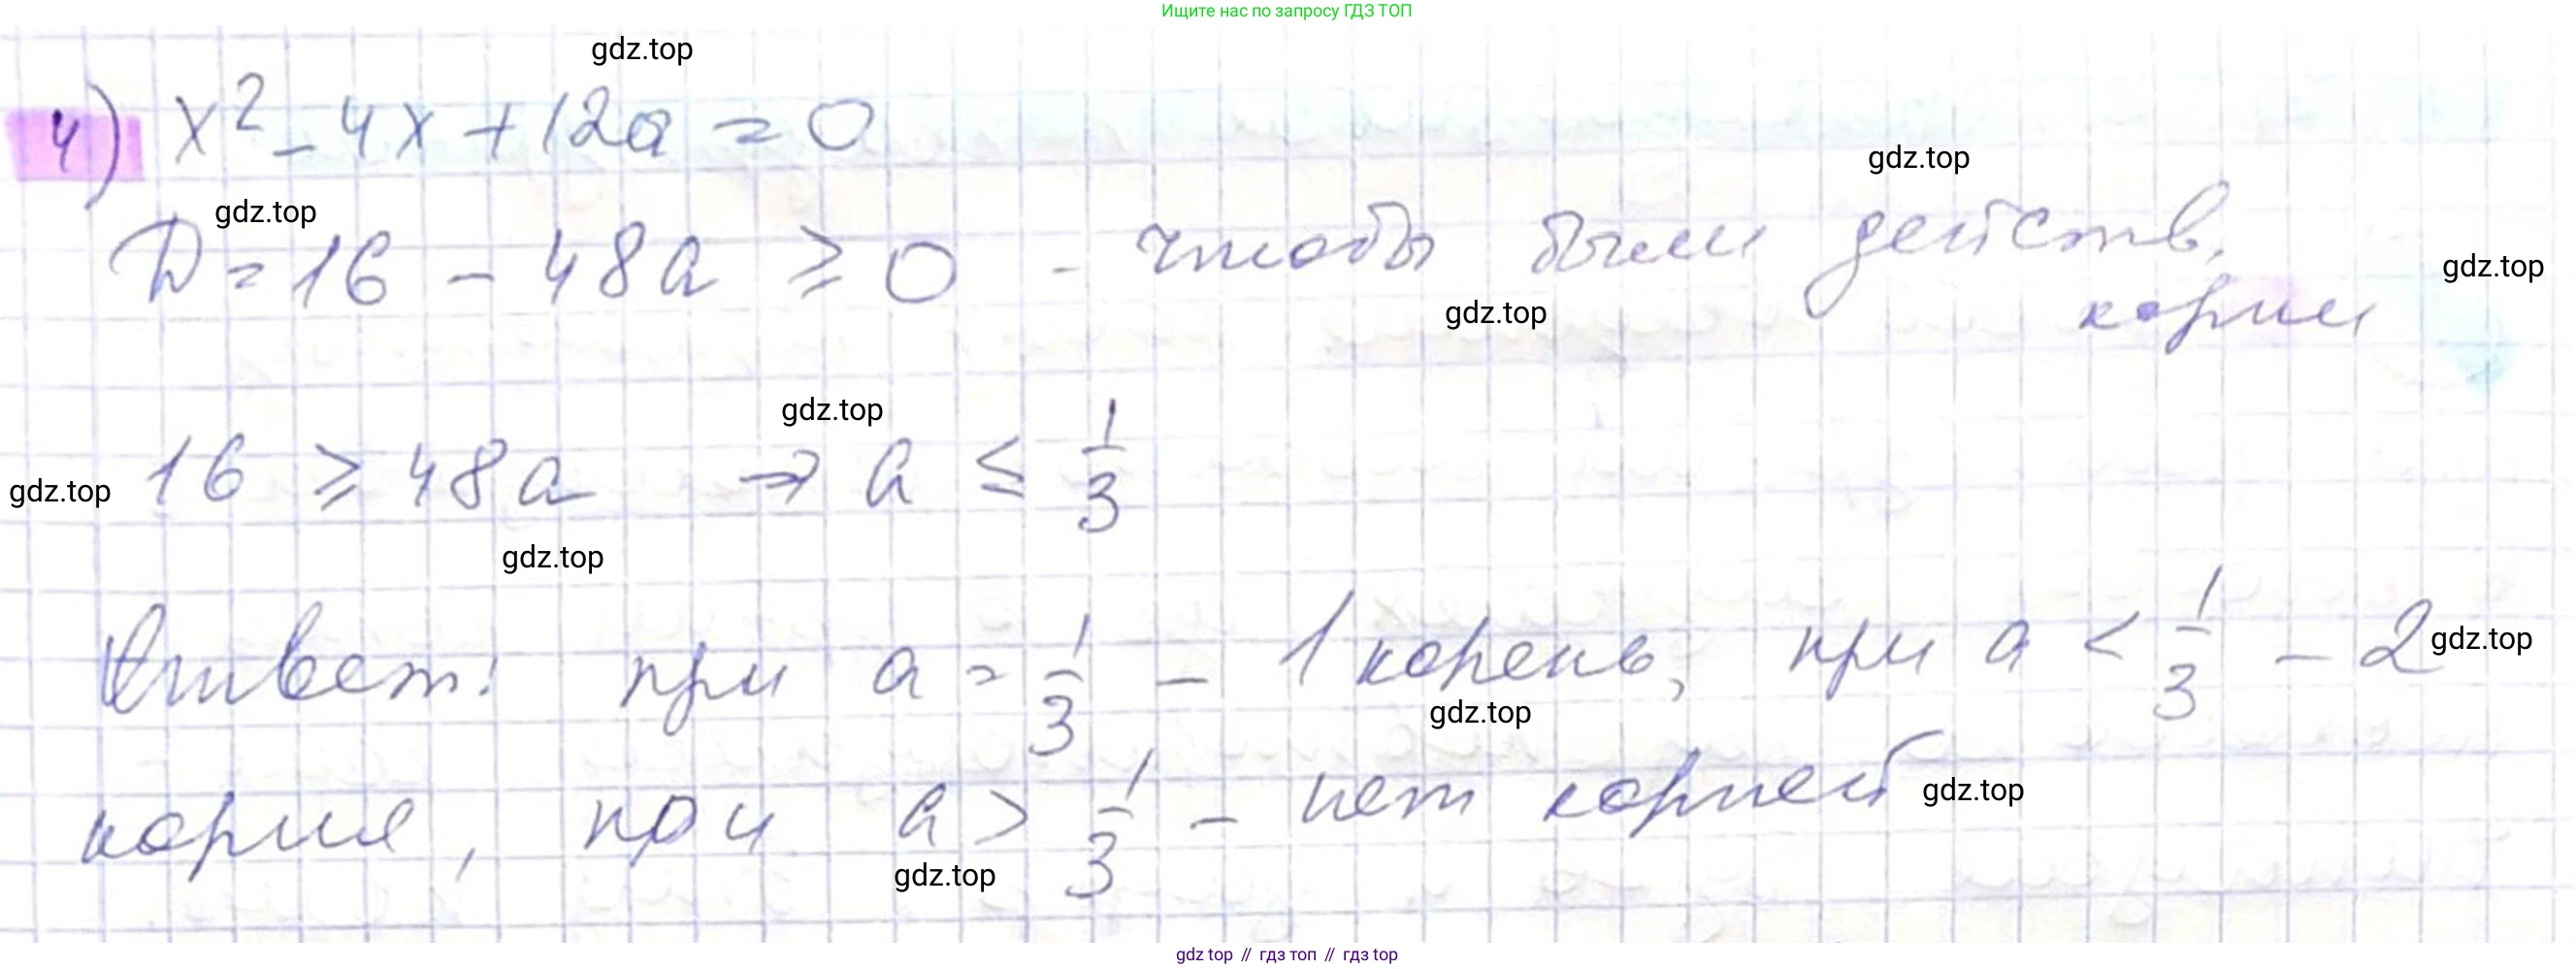 Ищите нас по запросу ГДЗ ТОП
gdz.top
4) x² - 4x + 12a = 0
gdz.top
gdz.top
D = 16 - 48a ⩾ 0 - чтобы были действ.
gdz.top
корни
gdz.top
gdz.top
16 ⩾ 48a → a ≤ 1/3
gdz.top
gdz.top
Ответ: при a = 1/3 - 1 корень, при a < 1/3 - 2
gdz.top
gdz.top
корня, при a > 1/3 - нет корней
gdz.top
gdz.top
gdz top // гдз топ // гдз top